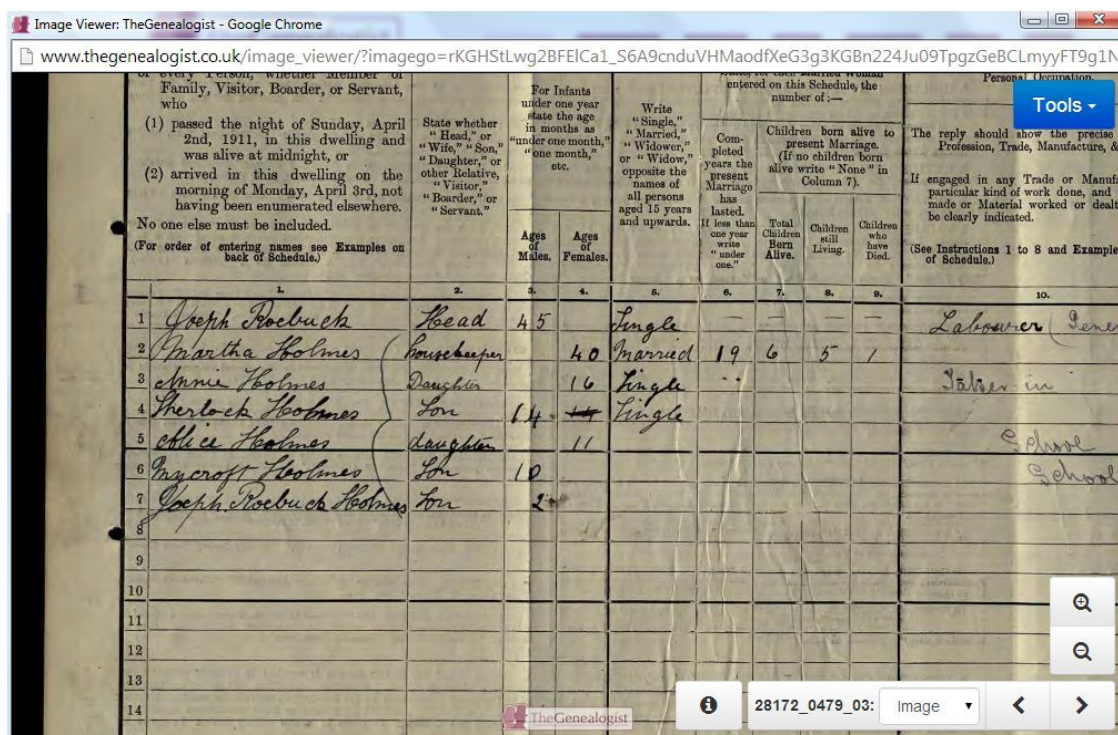 Image Viewer: TheGenealogist - Google Chrome
www.thegenealogist.co.uk/image_viewer/?imagego=rKGHStLwg2BFElCa1_S6A9cnduVHMaodfXeG3g3KGBn224Ju09TpgzGeBCLmyyFT9g1N
Tools
or every Person, whether Member of
Family, Visitor, Boarder, or Servant,
who
(1) passed the night of Sunday, April
2nd, 1911, in this dwelling and
was alive at midnight, or
(2) arrived in this dwelling on the
morning of Monday, April 3rd, not
having been enumerated elsewhere.
No one else must be included.
(For order of entering names see Examples on
back of Schedule.)
State whether
"Head," or
"Wife," "Son,"
"Daughter," or
other Relative,
"Visitor,"
"Boarder," or
"Servant."
For Infants
under one year
state the age
in months as
"under one month,"
"one month,"
etc.
Ages
of
Males.
Ages
of
Females.
Write
"Single,"
"Married,"
"Widower,"
or "Widow,"
opposite the
names of
all persons
aged 15 years
and upwards.
State, for each Married Woman
entered on this Schedule, the
number of :—
Com-
pleted
years the
present
Marriage
has
lasted.
If less than
one year
write
"under
one."
Children born alive to
present Marriage.
(If no children born
alive write "None" in
Column 7).
Total
Children
Born
Alive.
Children
still
Living.
Children
who
have
Died.
Personal Occupation.
The reply should show the precise
Profession, Trade, Manufacture, &
If engaged in any Trade or Manufa
particular kind of work done, and
made or Material worked or dealt
be clearly indicated.
(See Instructions 1 to 8 and Example
of Schedule.)
1. 2. 3. 4. 5. 6. 7. 8. 9. 10.
1 Joseph Roebuck Head 45 Single — — — — Labourer (Gene
2 Martha Holmes housekeeper 40 Married 19 6 5 1
3 Annie Holmes Daughter 16 Single
4 Sherlock Holmes Son 14 14 Single
5 Alice Holmes daughter 11 School
6 Mycroft Holmes Son 10 School
7 Joseph Roebuck Holmes Son 2
8
9
10
11
12
13
14
TheGenealogist
28172_0479_03:
Image